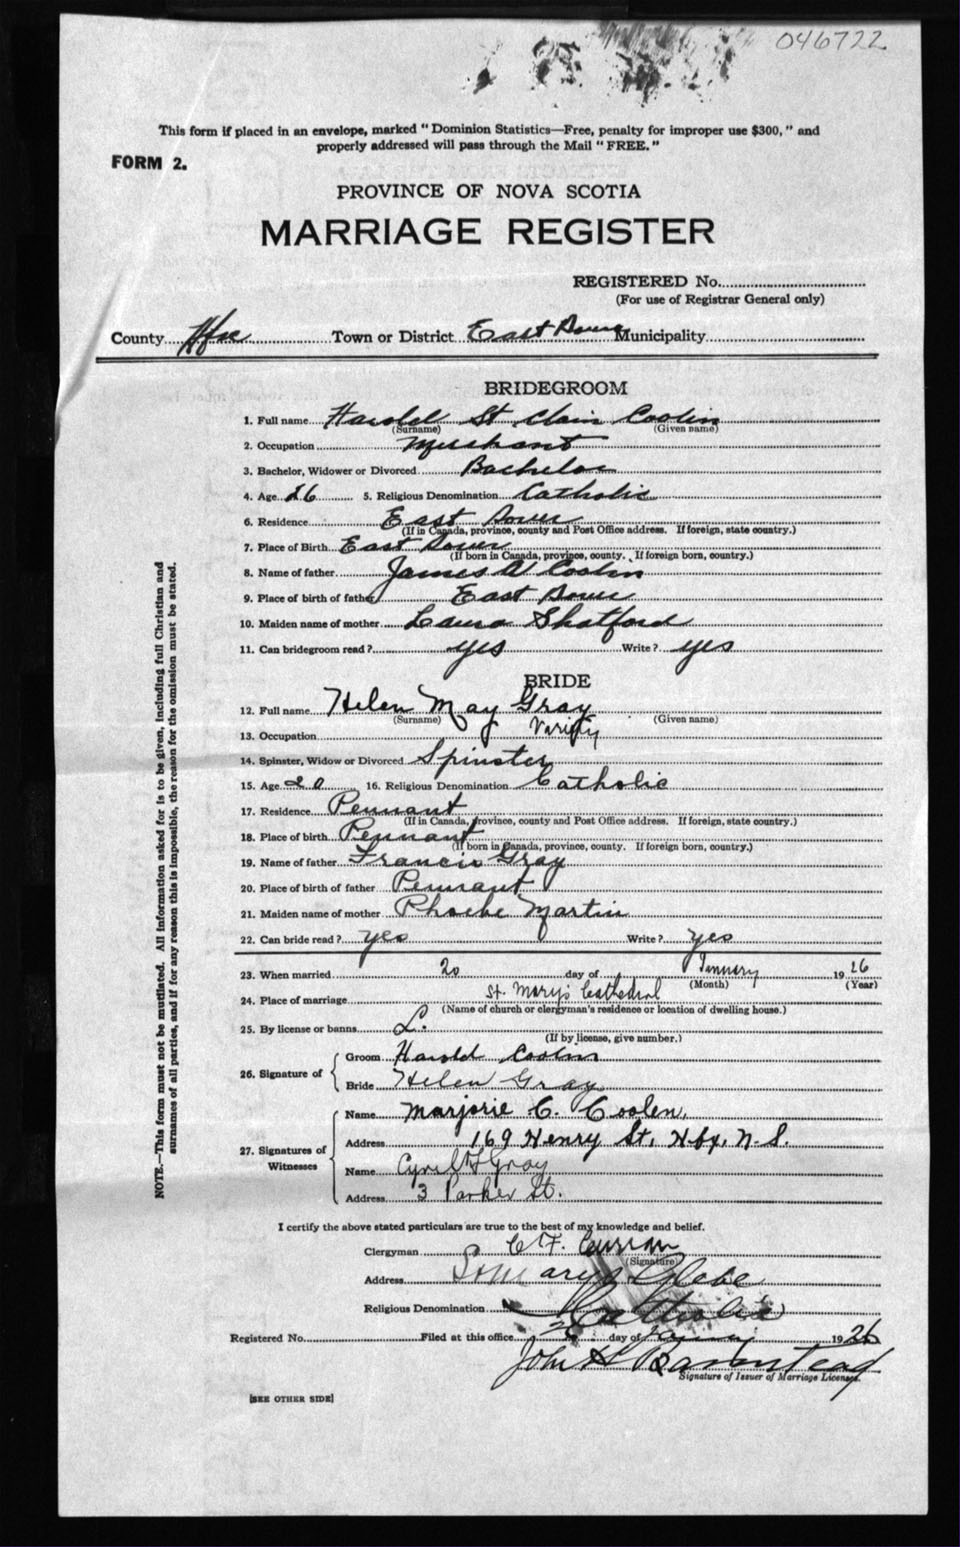 046722
This form if placed in an envelope, marked "Dominion Statistics—Free, penalty for improper use $300," and
properly addressed will pass through the Mail "FREE."
FORM 2.
PROVINCE OF NOVA SCOTIA
MARRIAGE REGISTER
REGISTERED No.
(For use of Registrar General only)
County Hfx Town or District East Dover Municipality
BRIDEGROOM
1. Full name Harold St Clair Coolin
(Surname) (Given name)
2. Occupation Merchant
3. Bachelor, Widower or Divorced Bachelor
4. Age 26 5. Religious Denomination Catholic
6. Residence East Dover
(If in Canada, province, county and Post Office address. If foreign, state country.)
7. Place of Birth East Dover
(If born in Canada, province, county. If foreign born, country.)
8. Name of father James W Coolin
9. Place of birth of father East Dover
10. Maiden name of mother Laura Shatford
11. Can bridegroom read? yes Write? yes
BRIDE
12. Full name Helen May Gray
(Surname) (Given name)
Verify
13. Occupation
14. Spinster, Widow or Divorced Spinster
15. Age 20 16. Religious Denomination Catholic
17. Residence Pennant
(If in Canada, province, county and Post Office address. If foreign, state country.)
18. Place of birth Pennant
(If born in Canada, province, county. If foreign born, country.)
19. Name of father Francis Gray
20. Place of birth of father Pennant
21. Maiden name of mother Phoebe Martin
22. Can bride read? yes Write? yes
23. When married 20 day of January 1926
(Month) (Year)
24. Place of marriage St. Mary's Cathedral
(Name of church or clergyman's residence or location of dwelling house.)
25. By license or banns L.
(If by license, give number.)
26. Signature of
Groom Harold Coolin
Bride Helen Gray
27. Signatures of Witnesses
Name Marjorie C. Coolen,
Address 169 Henry St, Hfx, N.S.
Name Cyril F Gray
Address 3 Parker St.
I certify the above stated particulars are true to the best of my knowledge and belief.
Clergyman C F. Curran
(Signature)
Address St Marys Glebe
Religious Denomination Catholic
Registered No. Filed at this office day of 1926
John H Barnstead
Signature of Issuer of Marriage Licenses.
[SEE OTHER SIDE]
NOTE.—This form must not be mutilated. All information asked for is to be given, including full Christian and
surnames of all parties, and if for any reason this is impossible, the reason for the omission must be stated.